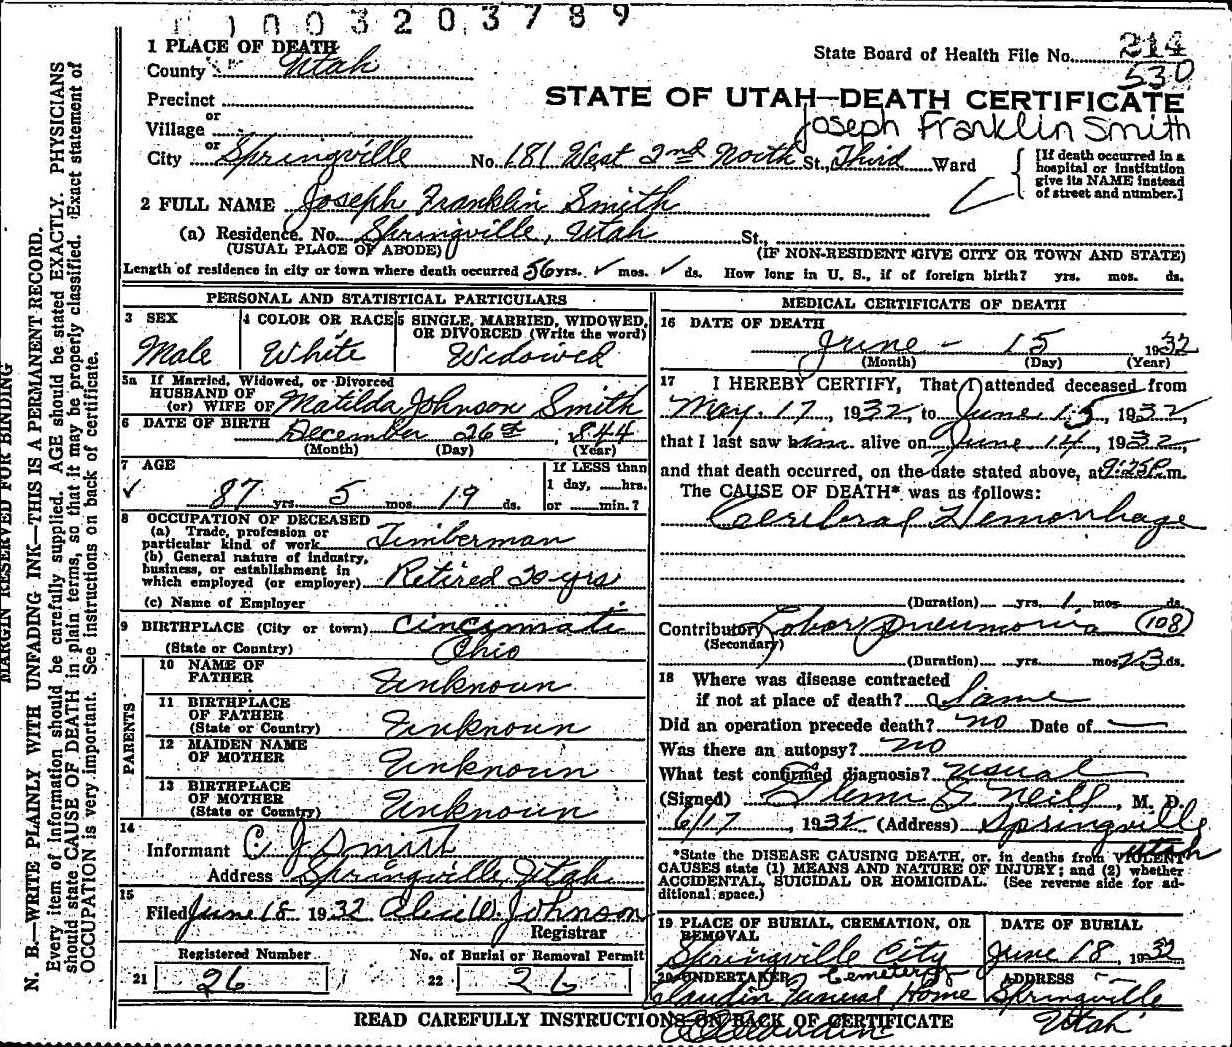 1003203789
1 PLACE OF DEATH
County Utah
State Board of Health File No. 214
530
Precinct
or
Village
STATE OF UTAH—DEATH CERTIFICATE
Joseph Franklin Smith
or
City Springville No. 181 West 2nd North St., Third Ward
[If death occurred in a hospital or institution give its NAME instead of street and number.]
2 FULL NAME Joseph Franklin Smith
(a) Residence. No. Springville, Utah St.,
(USUAL PLACE OF ABODE) (IF NON-RESIDENT GIVE CITY OR TOWN AND STATE)
Length of residence in city or town where death occurred 56 yrs. ✓ mos. ✓ ds. How long in U. S., if of foreign birth? yrs. mos. ds.
PERSONAL AND STATISTICAL PARTICULARS
3 SEX
Male
4 COLOR OR RACE
White
5 SINGLE, MARRIED, WIDOWED,
OR DIVORCED (Write the word)
Widowed
5a If Married, Widowed, or Divorced
HUSBAND OF
(or) WIFE OF Matilda Johnson Smith
6 DATE OF BIRTH December 26th, 1844
(Month) (Day) (Year)
7 AGE
✓ 87 yrs. 5 mos. 19 ds.
If LESS than
1 day, ......hrs.
or ......min.?
8 OCCUPATION OF DECEASED
(a) Trade, profession or
particular kind of work Timberman
(b) General nature of industry,
business, or establishment in
which employed (or employer) Retired 20 yrs
(c) Name of Employer
9 BIRTHPLACE (City or town) Cincinnati
(State or Country) Ohio
PARENTS
10 NAME OF
FATHER Unknoun
11 BIRTHPLACE
OF FATHER
(State or Country) Unknoun
12 MAIDEN NAME
OF MOTHER Unknoun
13 BIRTHPLACE
OF MOTHER
(State or Country) Unknoun
14
Informant C J Smith
Address Springville, Utah
15
Filed June 18 1932 Alice W. Johnson
Registrar
Registered Number
21 26
No. of Burial or Removal Permit
22 26
MEDICAL CERTIFICATE OF DEATH
16 DATE OF DEATH
June - 15 1932
(Month) (Day) (Year)
17 I HEREBY CERTIFY, That I attended deceased from
May 17, 1932, to June 15, 1932,
that I last saw him alive on June 14, 1932,
and that death occurred, on the date stated above, at 9:25P.m.
The CAUSE OF DEATH* was as follows:
Cerebral Hemorrhage
(Duration) yrs. 1 mos. ds.
Contributory Lobar Pneumonia (108)
(Secondary)
(Duration) yrs. mos. 23 ds.
18 Where was disease contracted
if not at place of death? Same
Did an operation precede death? no Date of —
Was there an autopsy? no
What test confirmed diagnosis? usual
(Signed) Neill, M. D.
6/17, 1932 (Address) Springville
Utah
*State the DISEASE CAUSING DEATH, or, in deaths from VIOLENT
CAUSES state (1) MEANS AND NATURE OF INJURY; and (2) whether
ACCIDENTAL, SUICIDAL OR HOMICIDAL. (See reverse side for ad-
ditional space.)
19 PLACE OF BURIAL, CREMATION, OR
REMOVAL
Springville City
Cemetery
DATE OF BURIAL
June 18, 1932
20 UNDERTAKER
Claudin Funeral Home
ADDRESS
Springville
Utah
READ CAREFULLY INSTRUCTIONS ON BACK OF CERTIFICATE
MARGIN RESERVED FOR BINDING
N. B.—WRITE PLAINLY WITH UNFADING INK—THIS IS A PERMANENT RECORD.
Every item of information should be carefully supplied. AGE should be stated EXACTLY. PHYSICIANS
should state CAUSE OF DEATH in plain terms, so that it may be properly classified. Exact statement of
OCCUPATION is very important. See instructions on back of certificate.